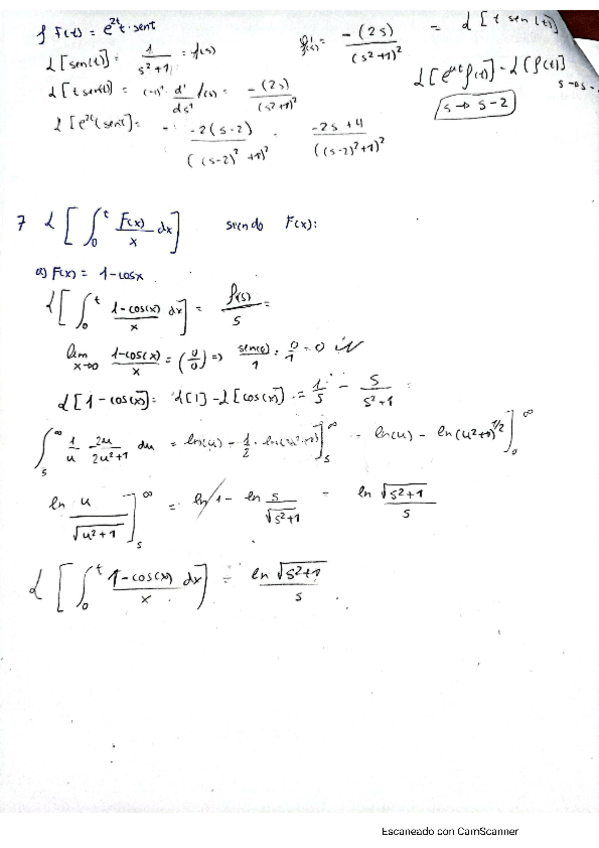 f F(t) = e^2t t · sent
L[sen(t)] = 1/(s²+1) = f(s)    f'(s) = -(2s)/(s²+1)² = L[t sen(t)]
L[t sen(t)] = (-1)¹ · d¹/ds¹ f(s) = -(2s)/(s²+1)²    L[e^at f(t)] = L[f(t)] s→s-
L[e^2t t sent] = -2(s-2)/((s-2)²+1)²    -2s+4/((s-2)²+1)²    s→s-2
7 L[∫₀ᵗ F(x)/x dx] siendo F(x):
a) F(x) = 1-cosx
L[∫₀ᵗ 1-cos(x)/x dx] = f(s)/s =
lim x→0 1-cos(x)/x = (0/0) => sen(0)/1 = 0/1 = 0
L[1-cos(x)] = L[1] - L[cos(x)] = 1/s - s/(s²+1)
∫ₛ^∞ 1/u 2u/(2u²+1) du = ln(u) - 1/2 · ln(u²+1)]ₛ^∞ = ln(u) - ln(u²+1)^1/2]₀^∞
ln u/√(u²+1)]ₛ^∞ = ln 1 - ln s/√(s²+1) = ln √(s²+1)/s
L[∫₀ᵗ 1-cos(x)/x dx] = ln √(s²+1)/s
Escaneado con CamScanner